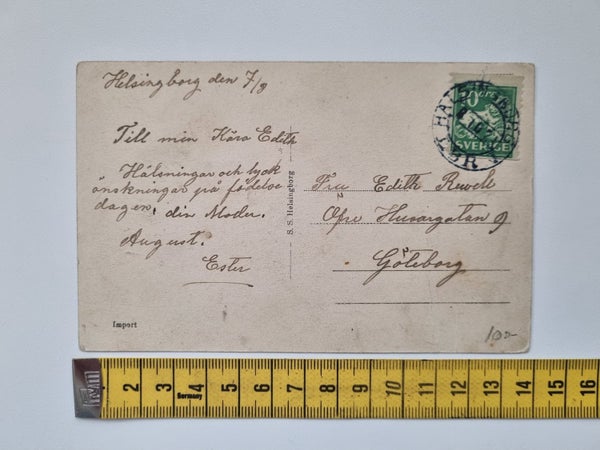 Helsingborg den 7/9
Till min Kära Edith
Hälsningar och lyck
önskningar på födelse
dagen, din Moder.
August.
Ester
S. S. Helsingborg
Fru Edith
Öfre Husargatan 9
Göteborg
SVERIGE
Import
100-
2 3 4 5 6 7 8 9 10 11 12 13 14 15 16
Germany